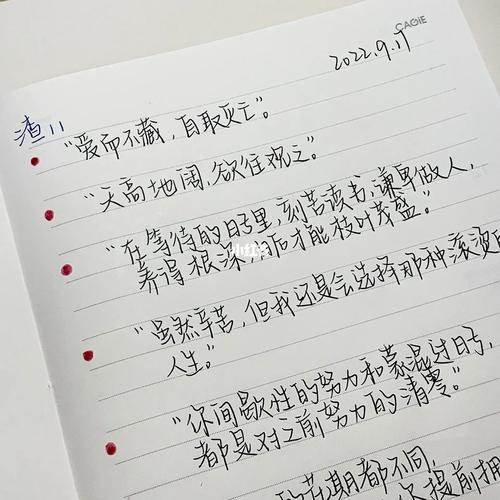 CAGIE
2022.9.17
渣11
"爱而不藏，自取灭亡"。
"天高地阔，欲往观之"。
"在等待的日子里，刻苦读书，谦卑做人，
养得根深，日后才能枝叶茂盛"。
小红书
"虽然辛苦，但我还是会选择那种滚烫的
人生。"
"你间歇性的努力和蒙混过日子，
都是对之前努力的清零。"
的花期都不同，
提前拥